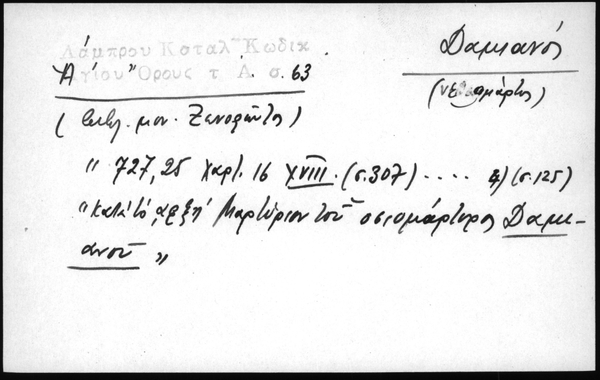 Λάμπρου Καταλ. Κωδικ
Ἁγίου Ὄρους τ. Α. σ. 63
Δαμιανός
(νεομάρτυς)
( βιβλ. μον. Ξενοφῶντος )
" 727, 25 χαρτ. 16 XVIII. (σ.307) .... 4) (σ.125)
" κατὰ τὸ, ἀρχὴ Μαρτύριον τοῦ ὁσιομάρτυρος Δαμι-
ανοῦ "